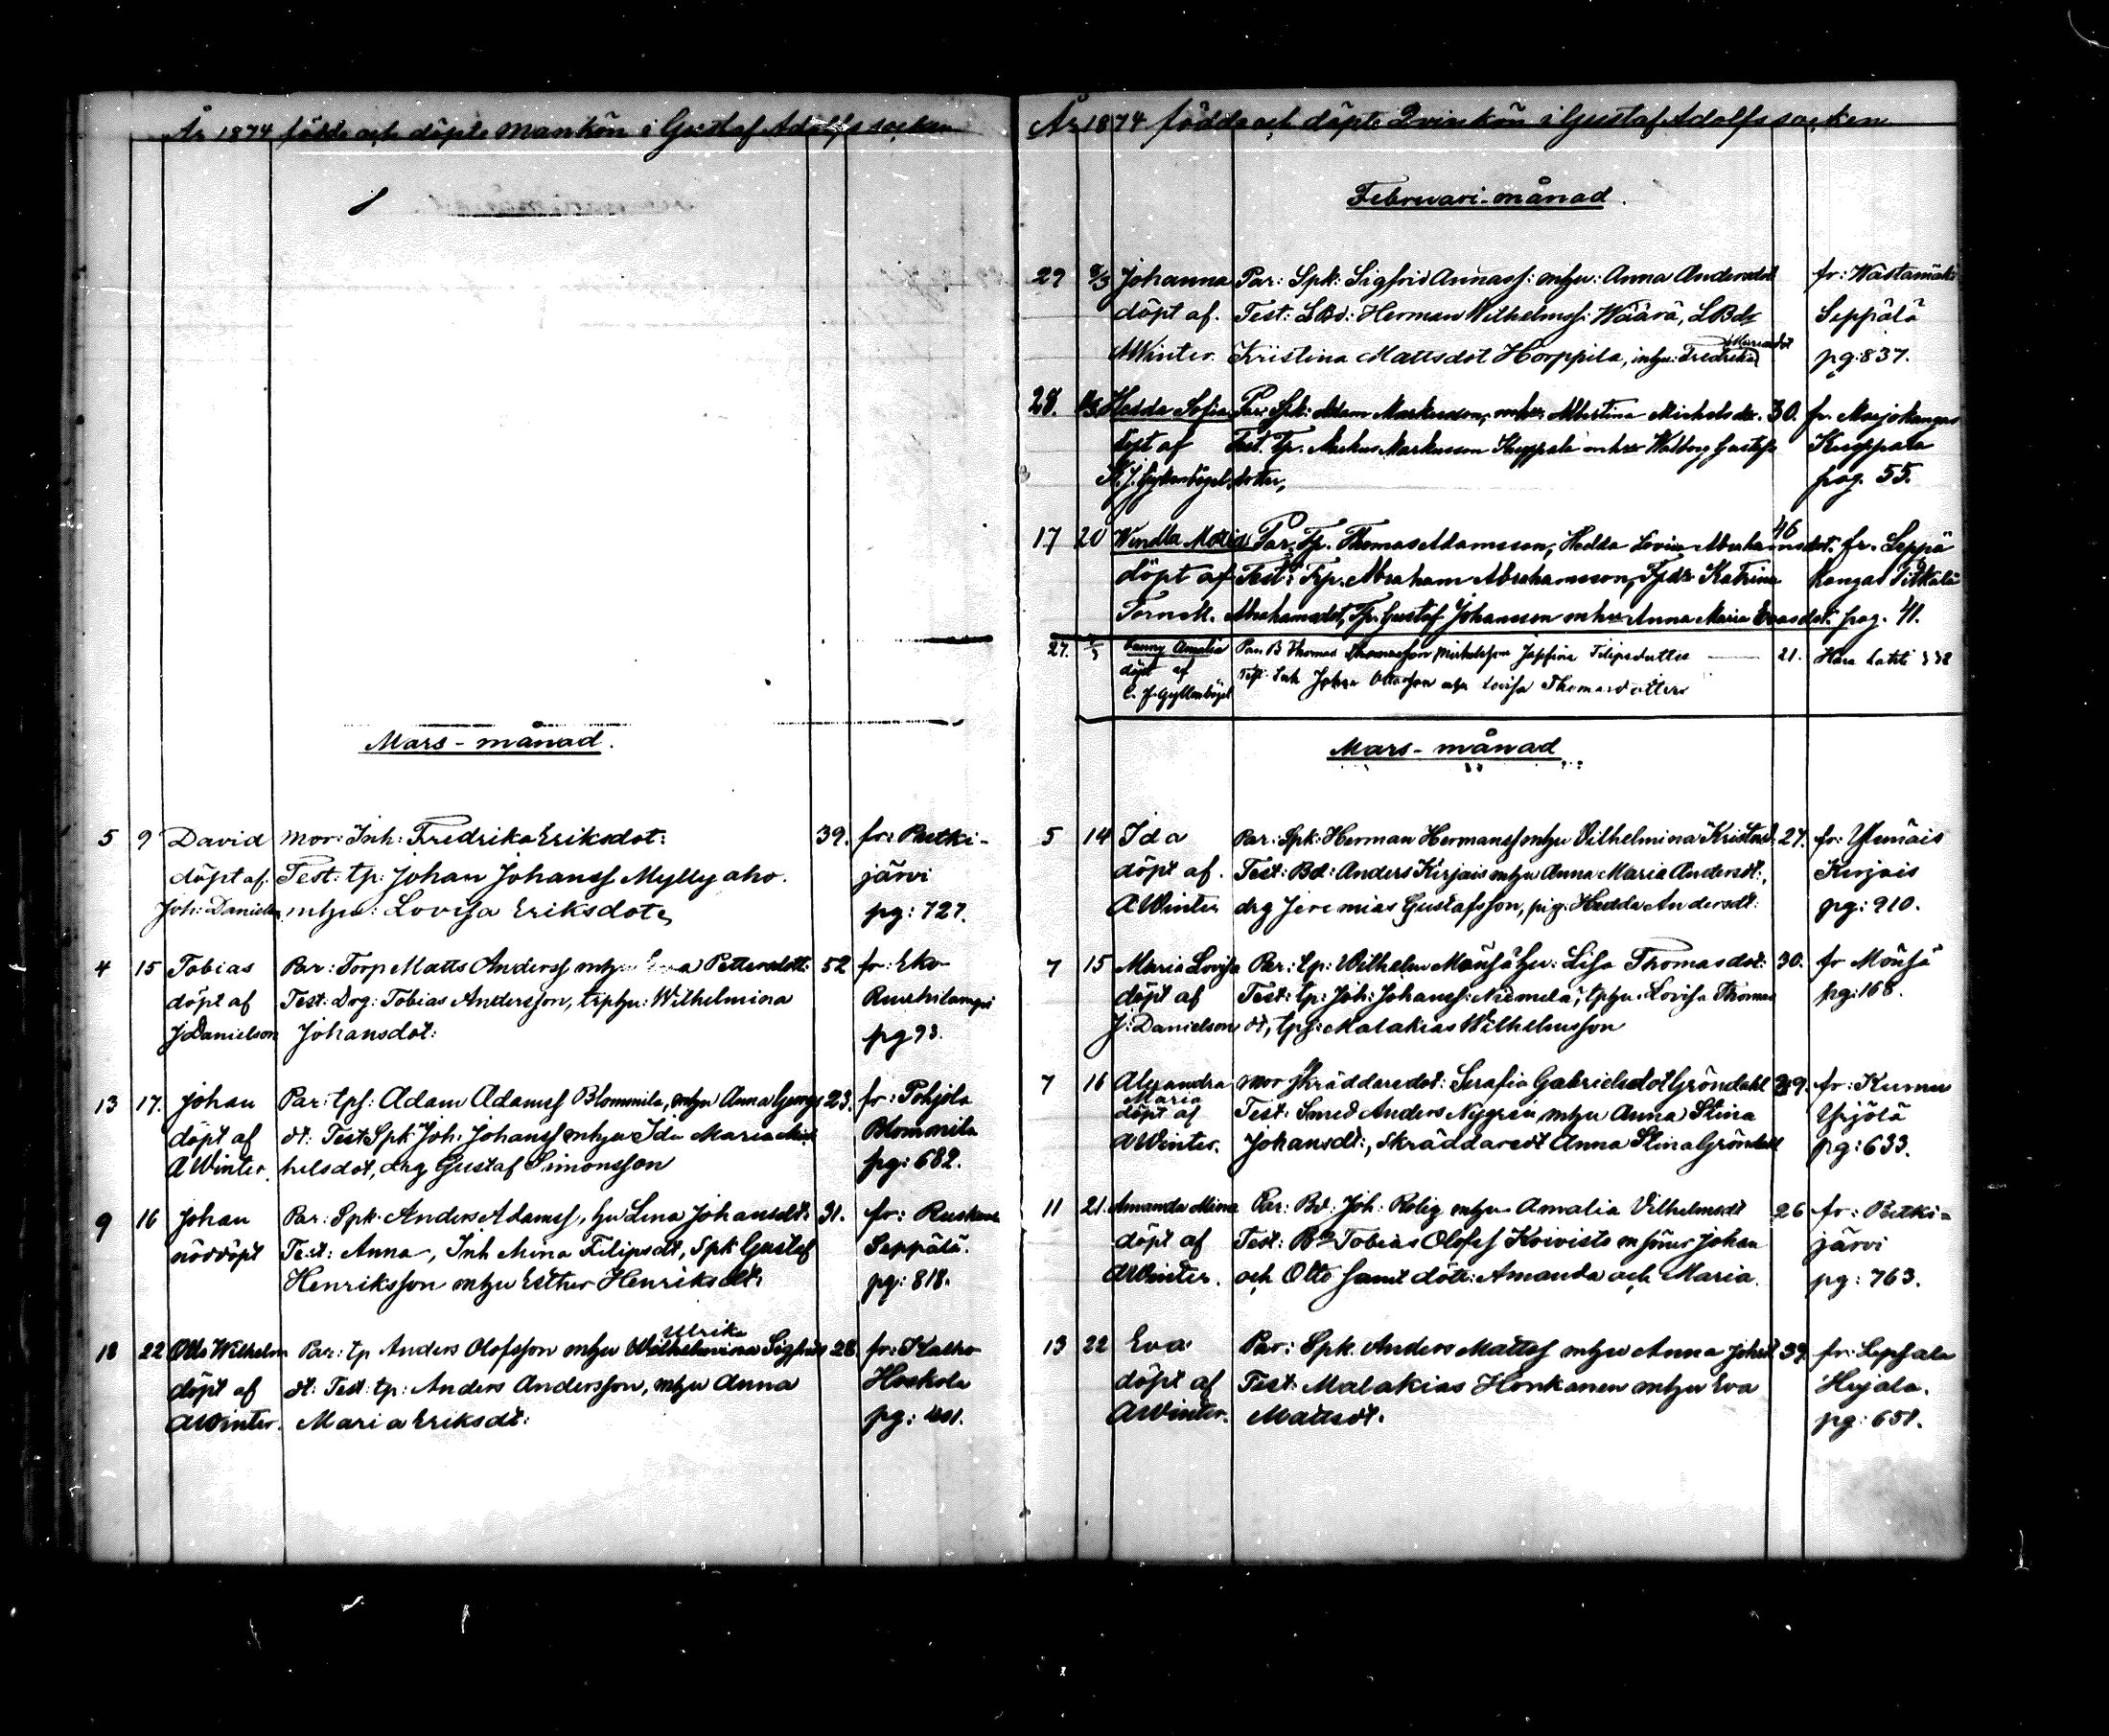 År 1874 födde och döpte Mankön i Gustaf Adolfs socken
Mars-månad.
5 9 David Mor: Inh: Fredrika Eriksdot: 39. fr: Putki-
döpt af. Test: tp: Johan Johanss Myllyaho. järvi
Joh: Danielson mhu: Lovisa Eriksdot. pg: 727.
4 15 Tobias Par: Torp Matts Anderss mhu Pettersdott: 52 fr: Eko
döpt af Test: Drg: Tobias Andersson, tiphu: Wilhelmina
J Danielson Johansdot: pg 93.
13 17. Johan Par: tps: Adam Adamss Blommila, mhu Anna Georgs 23. fr: Pohjola
döpt af dt: Test Spk Joh: Johanss mhu Ida Maria Mic Blommila
A Winter. helsdot, drg Gustaf Simonsson pg: 682.
9 16 Johan Par: Spk. Anders Adamss, hu Lena Johansdt: 31. fr: Ruskeala
nöddöpt Test: Anna, Inh Mina Filipsdt, Spk Gustaf Seppälä.
Henriksson mhu Esther Henriksdt. pg: 818.
18 22 Otto Wilhelm Par: tp Anders Olofsson mhu Ulrika Sigfrids 28. fr:
döpt af dt: Test: tp: Anders Andersson, mhu Anna Haskola
A Winter. Maria Eriksdt: pg: 401.
År 1874 födde och döpte Qvinkön i Gustaf Adolfs socken
Februari-månad.
27 8/3 Johanna Par: Spk: Sigfrid Annass: mhu: Anna Andersdot fr: Wästämäki
döpt af. Test: LBd: Herman Wilhelmss: Wäärä, LBdr Seppälä
A Winter. Kristina Mattsdot Horppila, inhu: Fredrika Mariasdot pg: 837.
28. Hedda Sofia Par: Spk: Adam Markusson, mhu Albertina Michelsdr. 30. fr. Marjokangas
döpt af Test. Tp. Markus Markusson Kuppala mhu Walborg Gustafs Kuppala
K. J. Gyllenbögel dotter, pag. 55.
17 20 Wendla Maria Par. Tp. Thomas Adamsson, Hedda Lovisa Abrahamsdot. 46 fr. Seppä
döpt af Test: Trp. Abraham Abrahamsson, Tpdr Katrina kangas Pitkälä
TornM. Abrahamsdot, Tp. Gustaf Johansson mhu Anna Maria Evasdot. pag. 41.
27. Fanny Amalia Par. B Thomas Thomasson Mickelsson Josefina Filipsdotter 21. Hara Lahti 332
döpt af Test Inh Johan Ottosson och Lovisa Thomasdotter
C. J. Gyllenbögel
Mars-månad
5 14 Ida Par: Spk: Herman Hermanss mhu Vilhelmina Kristind. 27. fr: Ylimäis
döpt af. Test: Bd: Anders Kirjais mhu Anna Maria Andersdt:, Kirjais
A Winter drg Jeremias Gustafsson, pig. Hedda Andersdt: pg: 910.
7 15 Maria Lovisa Par: Tp: Wilhelm Mönsä hu: Lisa Thomasdot: 30. fr Mönsä
döpt af Test: tp: Joh: Johanss: Niemelä, tphu: Lovisa Thomas pg: 168.
J: Danielson dt, tps: Malakias Wilhelmsson
7 16 Alexandra Mor Skräddaredot: Serafia Gabrielsdot Gröndahl 39. fr: Kumu
Maria
döpt af Test: Smed Anders Nygren mhu Anna Stina Yrjölä
A Winter. Johansdt:, Skräddaredt Anna Stina Gröndahl pg: 633.
11 21. Amanda Mina Par: Bd: Joh: Rolig mhu Amalia Vilhelmsdt 26 fr: Putki-
döpt af Test: Bd Tobias Olofss Koivisto m söner Johan järvi
A Winter. och Otto samt dött: Amanda och Maria. pg: 763.
13 22 Eva Par: Spk. Anders Mattss mhu Anna Johsdt 39. fr: Lepsala
döpt af Test: Malakias Honkanen mhu Eva Hujala.
A Winter. Mattsdt. pg: 651.